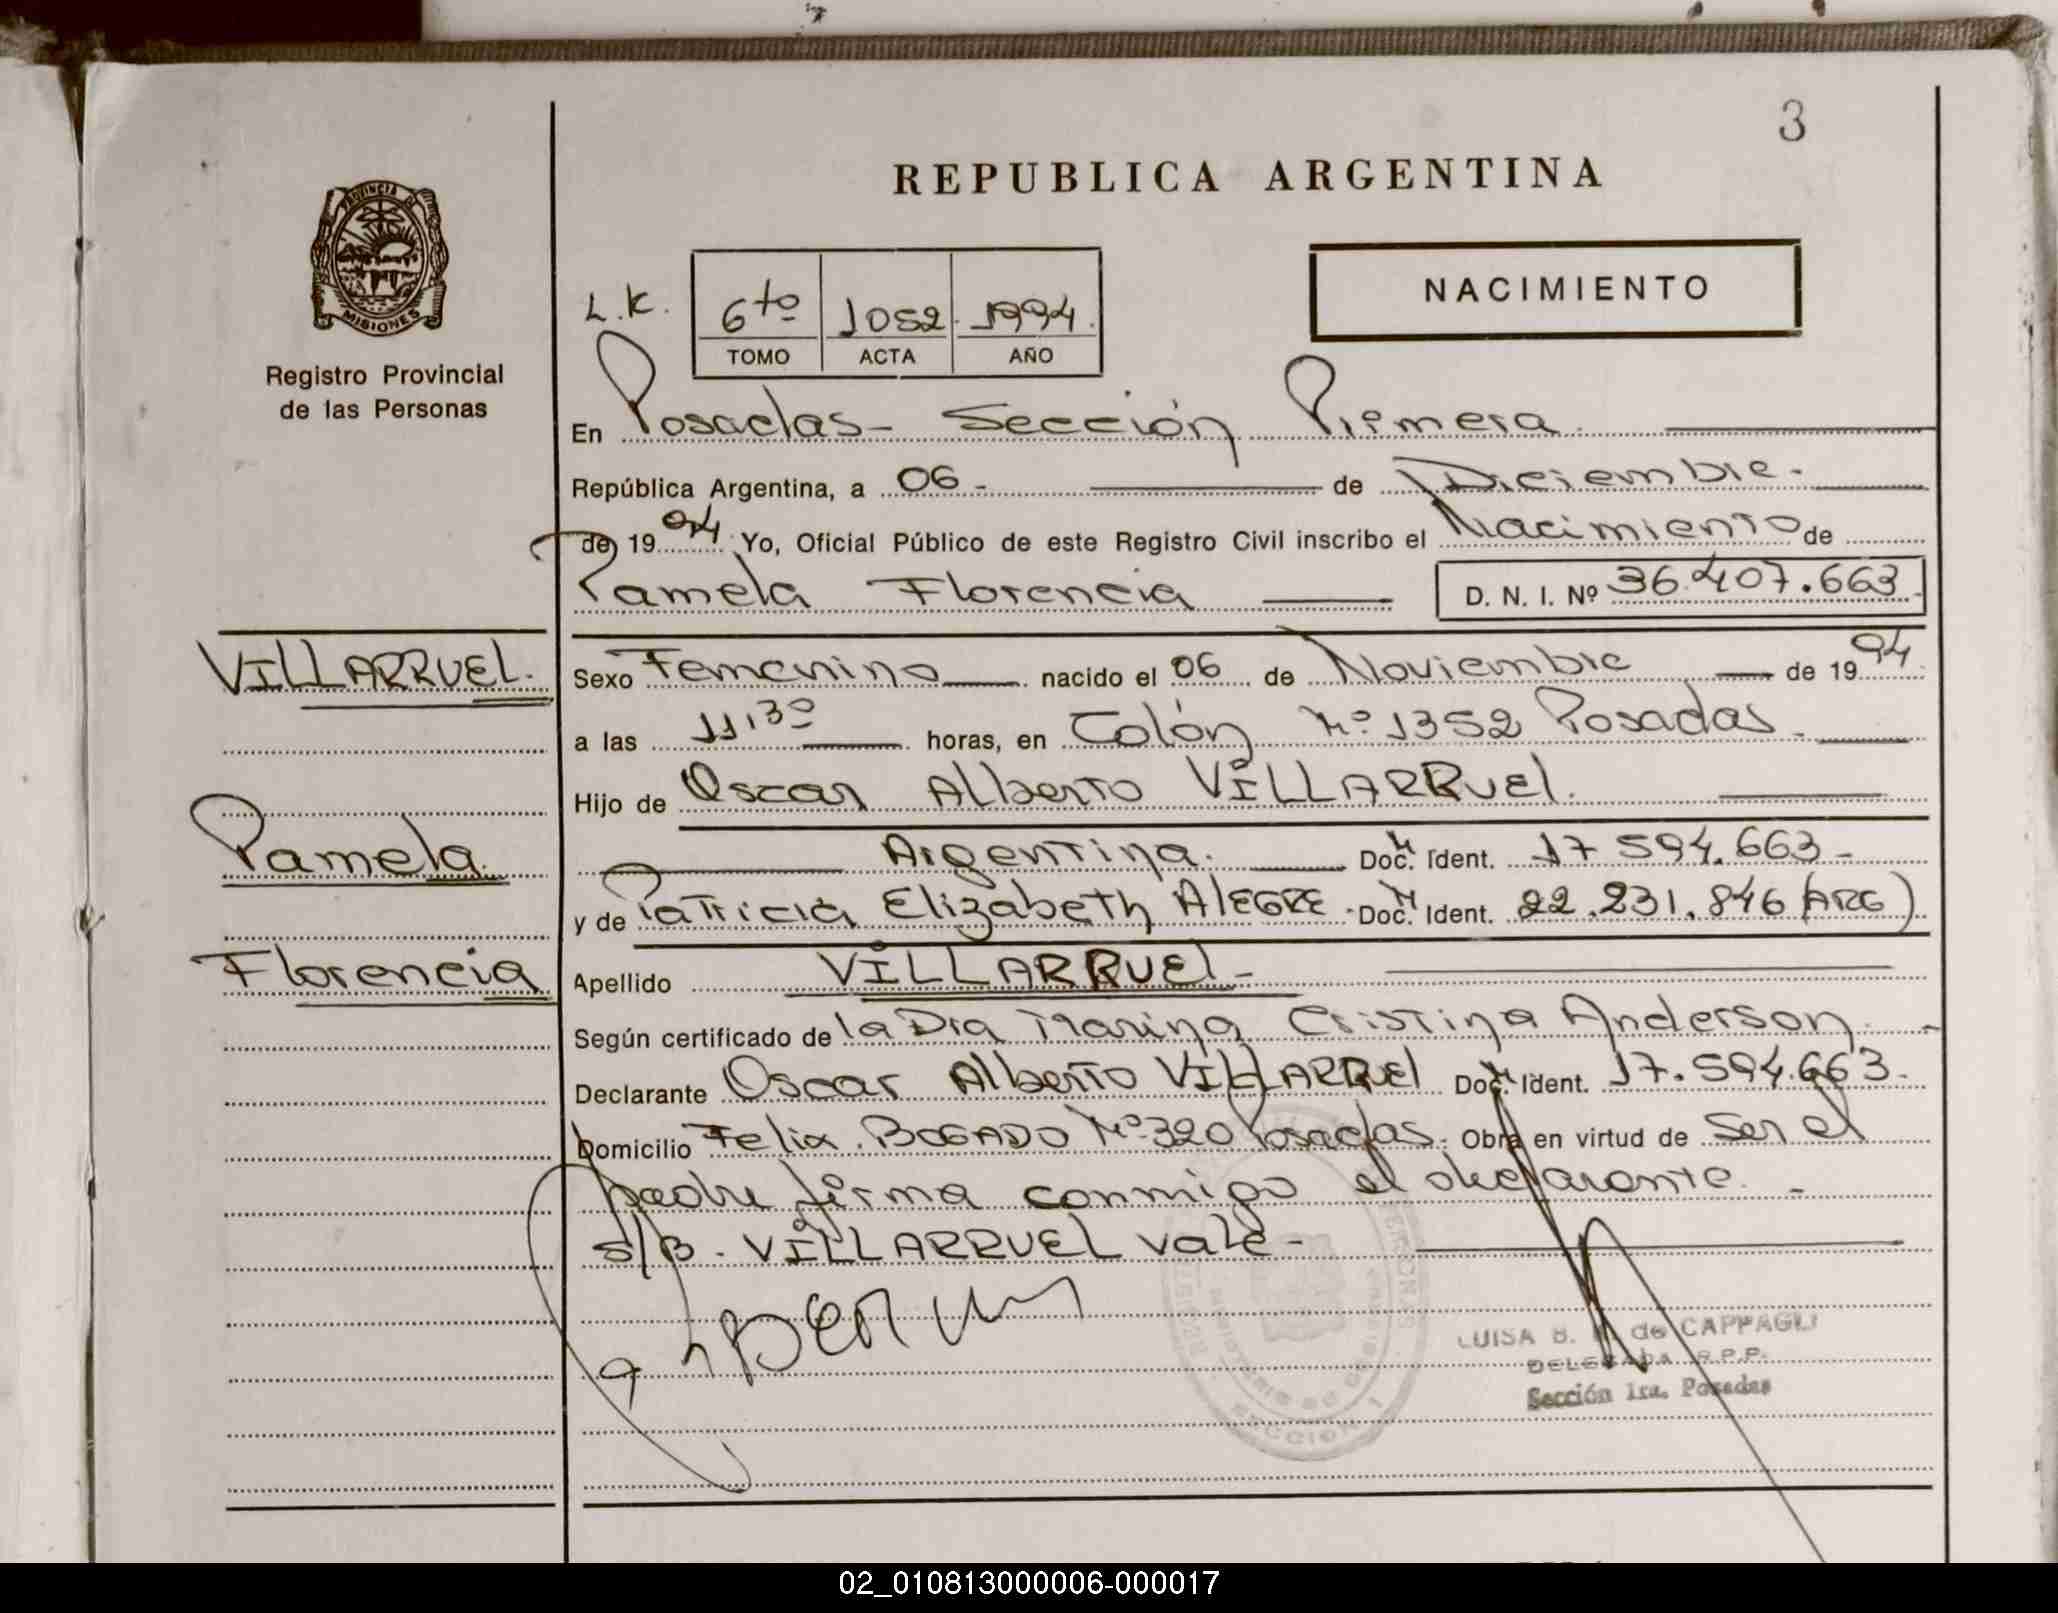 3
REPUBLICA ARGENTINA
PROVINCIA DE
MISIONES
Registro Provincial
de las Personas
L.K.
6to 1052 1994
TOMO ACTA AÑO
NACIMIENTO
En Posadas - Sección Primera
República Argentina, a 06 - de Diciembre -
de 1994 Yo, Oficial Público de este Registro Civil inscribo el Nacimiento de
Pamela Florencia D. N. I. Nº 36.407.663
VILLARRUEL.
Pamela
Florencia
Sexo Femenino nacido el 06 de Noviembre de 1994
a las 11,30 horas, en Colón Nº 1352 Posadas
Hijo de Oscar Alberto VILLARRUEL.
Argentina. Doc. Ident. 17 594.663 -
y de Patricia Elizabeth AlEGRE. Doc. Ident. 22.231.846 (ARG)
Apellido VILLARRUEL -
Según certificado de la Dra Marina Cristina Anderson.
Declarante Oscar Alberto VILLARRUEL Doc. Ident. 17.594.663.
Domicilio Felix BOGADO Nº 320 Posadas. Obra en virtud de Ser el
padre firma conmigo el declarante. -
S/B. VILLARRUEL Vale -
LUISA B. de CAPPAGLI
DELEGADA R.P.P.
Sección 1ra. Posadas
SECCION 1
02_010813000006-000017